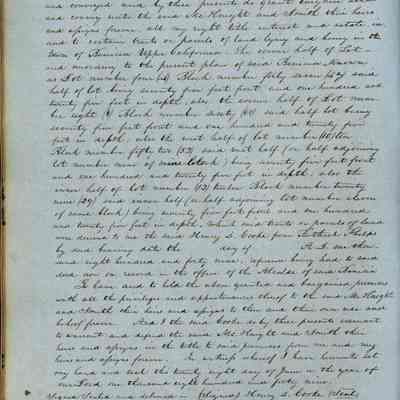 and conveyed and by these presents do grant bargain
and convey unto the said McKnight and Smith their heirs
and assigns forever all my right title interest and estate in
and to certain tracts or parcels of land lying and being in the
Town of Benicia Upper California. The eastern half of Lot
and according to the present plan of said Benicia, known
as Lot number four (4) Block number fifty seven (57) said
half of lot being seventy five feet front and one hundred and
twenty five feet in depth, also the eastern half of Lot num
ber eight (8) Block number said half lot being
seventy five feet front and one hundred and twenty five
feet in depth, also the west half of lot number
Block number fifty two (52) said west half (or half adjoining
lot number nine of same block) being seventy five feet front
and one hundred and twenty five feet in depth, also the
eastern half of lot number (12) twelve Block number twenty
nine (29) said eastern half (or half adjoining lot number eleven
of same block) being seventy five feet front and one hundred
and twenty five feet in depth. Which said tracts or parcels of land
were deeded to me the said Henry S. Cooke from Bethuel Phelps
by deed bearing date the day of A.D. one thou
sand eight hundred and forty nine, reference being had to said
deed now on record in the office of the Alcalde of said Benicia
To have and to hold the above granted and bargained premises
with all the privileges and appurtenances thereof to the said McKnight
and Smith their heirs and assigns to their and their own use and
behoof forever. And I the said Cooke do by these presents covenant
to warrant and defend the said McKnight and Smith their
heirs and assigns in the title to said premises from me and my
heirs and assigns forever. In witness whereof I have hereunto set
my hand and seal the twenty eight day of June in the year of
our Lord one thousand eight hundred and forty nine.
Signed Sealed and delivered in (Signed) Henry S. Cooke (Seal)